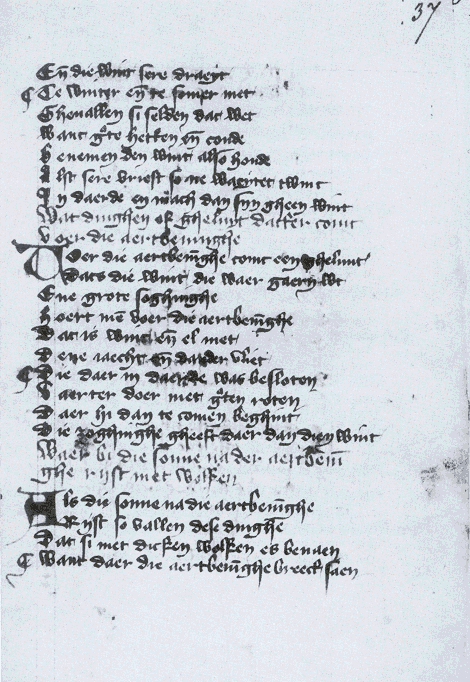 37
En̄ die wint sere draeyt
Te winter en̄ te somer met
Gheuallen si selden dat wet
want gͦte hetten en̄ coude
b enemen den wint also houde
A lst sere vriest so ne waeyet twint
I n daerde en mach dan syn gheen wint
Wat dinghen of gheluyt datter comt
voer die aertbeuinghe
V oer die aertbeuīghe comt een gheluut
Dats die wint die waer gaern wt
Ene grote soghinghe
hoert mē voer die aertbeuīghe
D at is wint en̄ el met
D ene iaecht en̄ dander vliet
D ie daer in daerde was besloten
D aer ter doer met gͦten roten
D aer hi dan te comen beghint
Die soghinghe gheeft daer dan dien wint
Waer bi die sonne na der aertbeuī
ghe rijst met wolken
A ls die sonne na die aertbeuīghe
Rijst so vallen dese dinghe
D at si met dicken wolken es beuaen
Want daer die aertbeuīghe breect saen